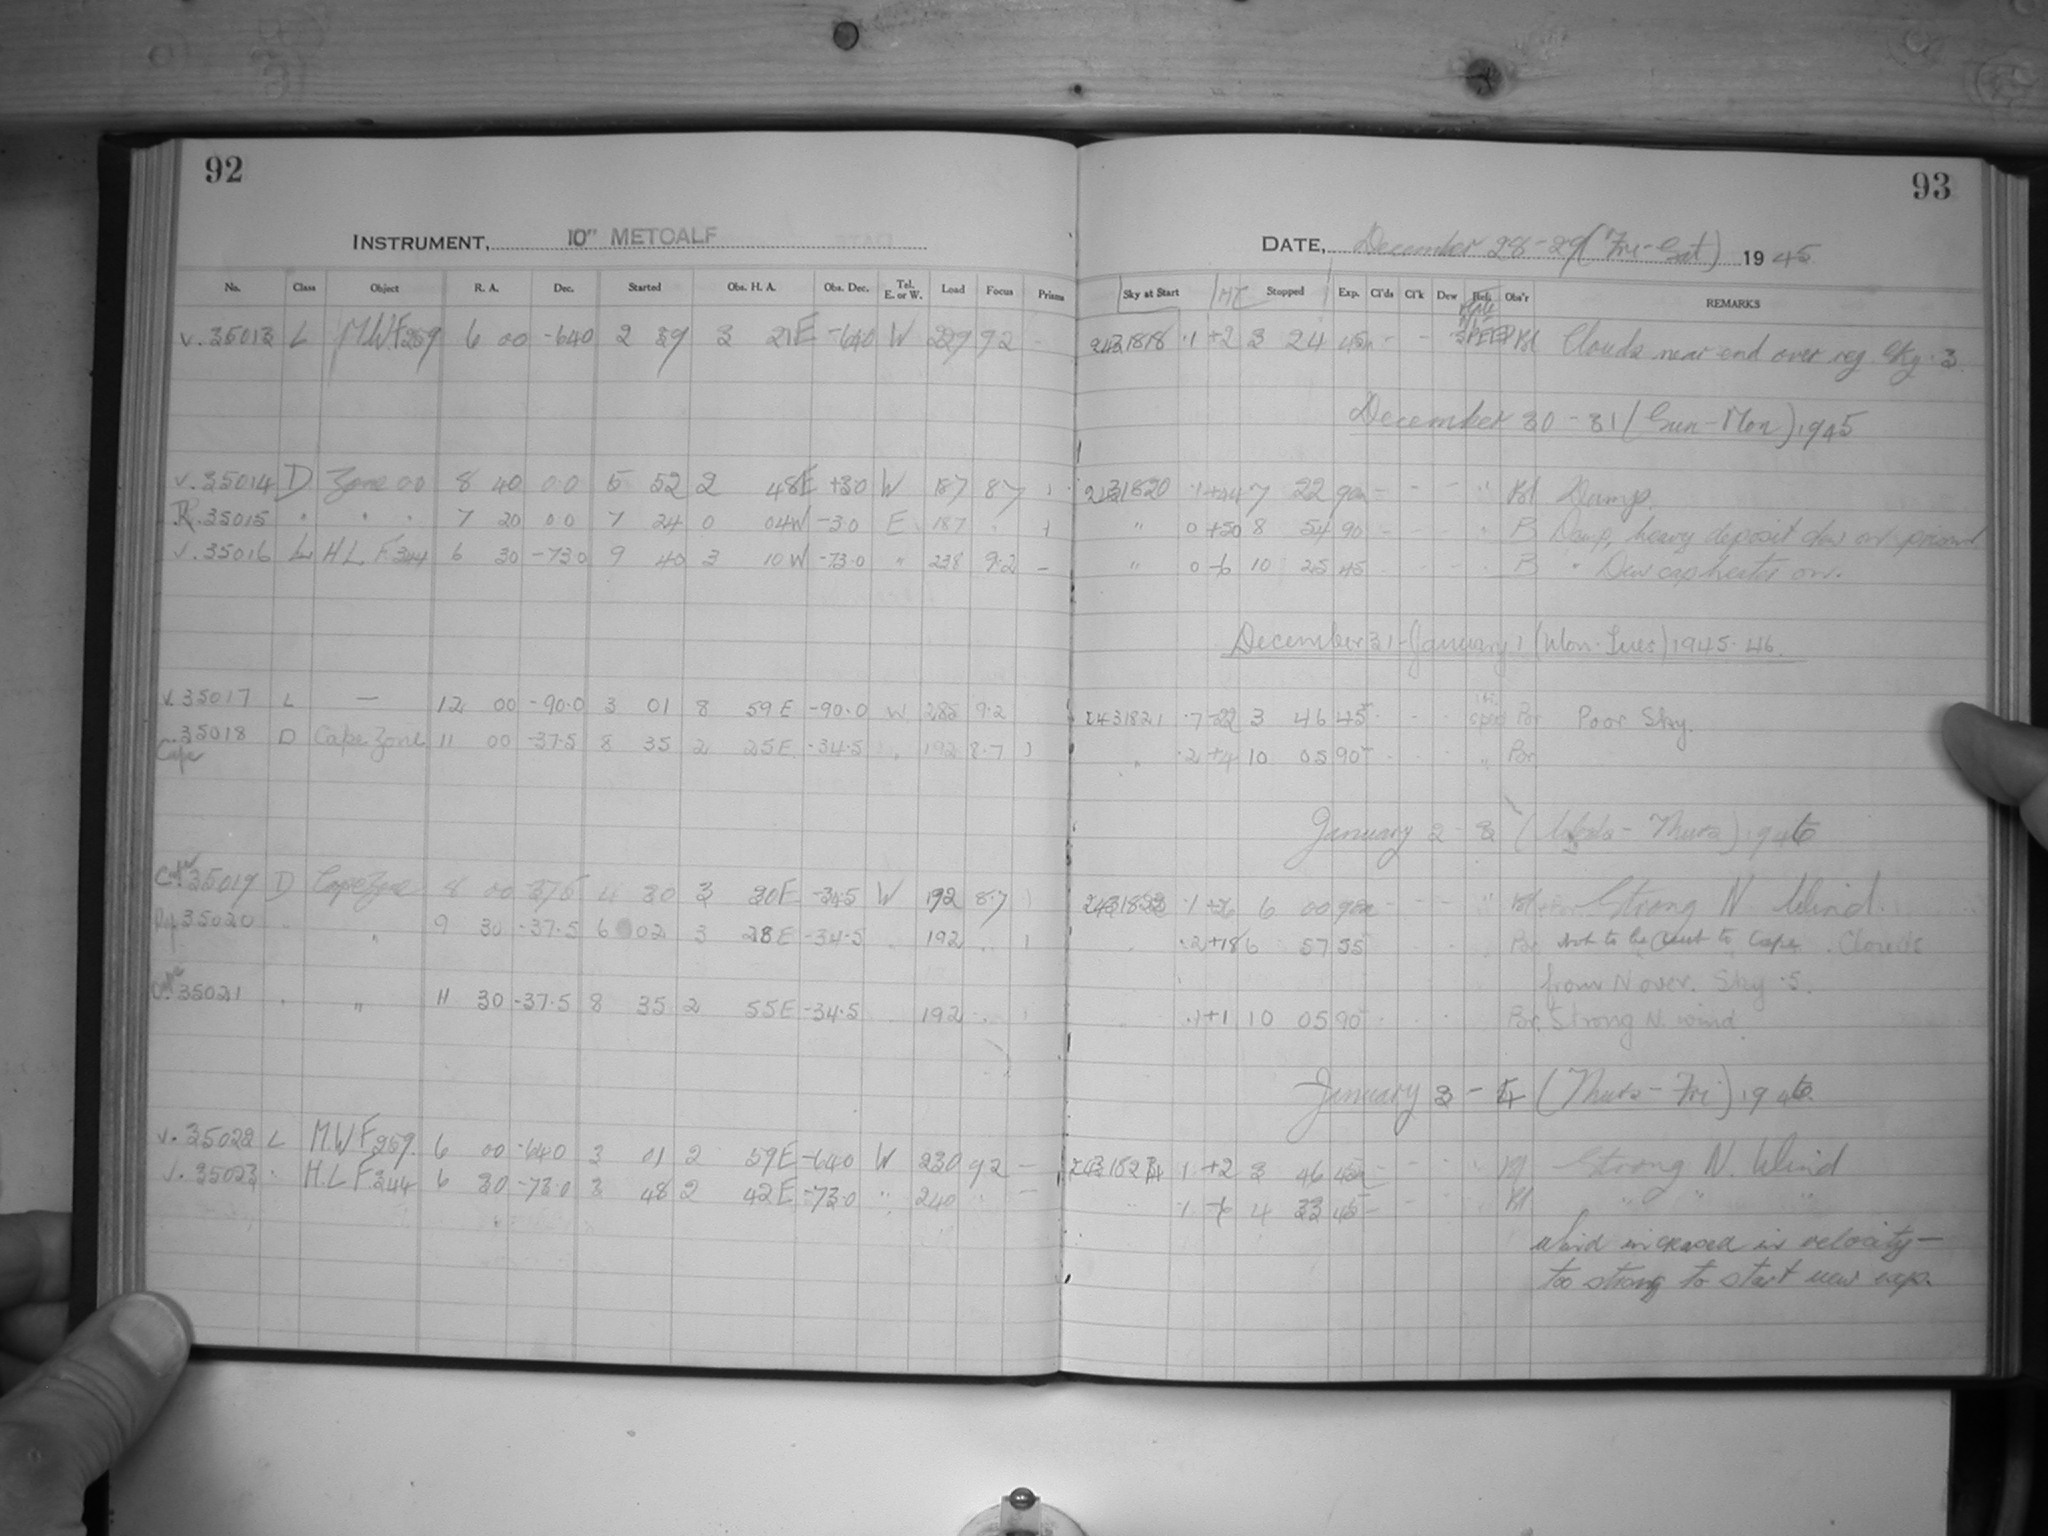 92
93
INSTRUMENT, 10" METCALF
DATE, December 28-29 (Fri-Sat) 1945
No. Class Object R. A. Dec. Started Obs. H. A. Obs. Dec. Tel. E. or W. Load Focus Prisms
Sky at Start Stopped Exp. Cl'ds Cl'k Dew Obs'r REMARKS
v. 35013 L M.W.F 259 6 00 -64.0 2 39 3 21E -64.0 W 229 9.2 - 2431818 .1 +2 3 24 45m - - Bl Clouds near end over reg. Sky .3
December 30-31 (Sun-Mon) 1945
v. 35014 D Zone 00 8 40 0.0 5 52 2 48E +3.0 W 187 8.7 2431820 .1 +44 7 22 90m - - - " Bl Damp.
R. 35015 " " 7 20 0.0 7 24 0 04W -3.0 E 187 " " 0 +50 8 54 90 - - - " B Damp, heavy deposit dew on prism
v. 35016 L H.L.F. 344 6 30 -73.0 9 40 3 10W -73.0 " 238 9.2 - " 0 -6 10 25 45 - - - " B " Dew cap heater on.
December 31-January 1 (Mon-Tues) 1945-46.
v. 35017 L — 12 00 -90.0 3 01 8 59E -90.0 W 285 9.2 2431821 .7 -22 3 46 45 - - - Por Poor Sky.
35018 D Cape Zone 11 00 -37.5 8 35 2 25E -34.5 " 192 8.7 " .2 +4 10 05 90 - - - " Por
Cape
January 2-3 (Weds-Thurs) 1946
35019 D Cape Zone 8 00 -37.5 4 30 3 30E -34.5 W 192 8.7 .1 6 00 90m - - " Strong N Wind.
35020 " 9 30 -37.5 6 02 3 28E -34.5 192 .2 +18 6 57 55 Por Not to be sent to Cape. Clouds
from N over. Sky .5.
35021 " " 11 30 -37.5 8 35 2 55E -34.5 192 .1 +1 10 05 90 Por. Strong N. wind.
January 3-4 (Thurs-Fri) 1946
v. 35022 L M.W F 259. 6 00 -64.0 3 01 2 59E -64.0 W 230 9.2 - .1 +2 3 46 45m - - - Bl Strong N. Wind
v. 35023 " H.L F 344 6 30 -73.0 3 48 2 42E -73.0 " 240 - .1 -6 4 33 45 - - - Bl " " "
Wind increased in velocity—
too strong to start new exp.